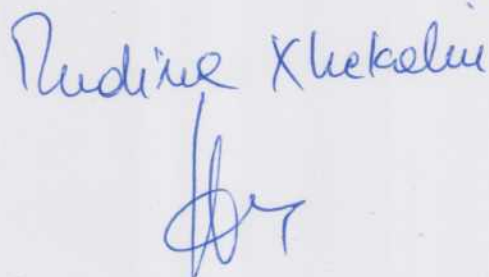 Rudina Xhekaliu